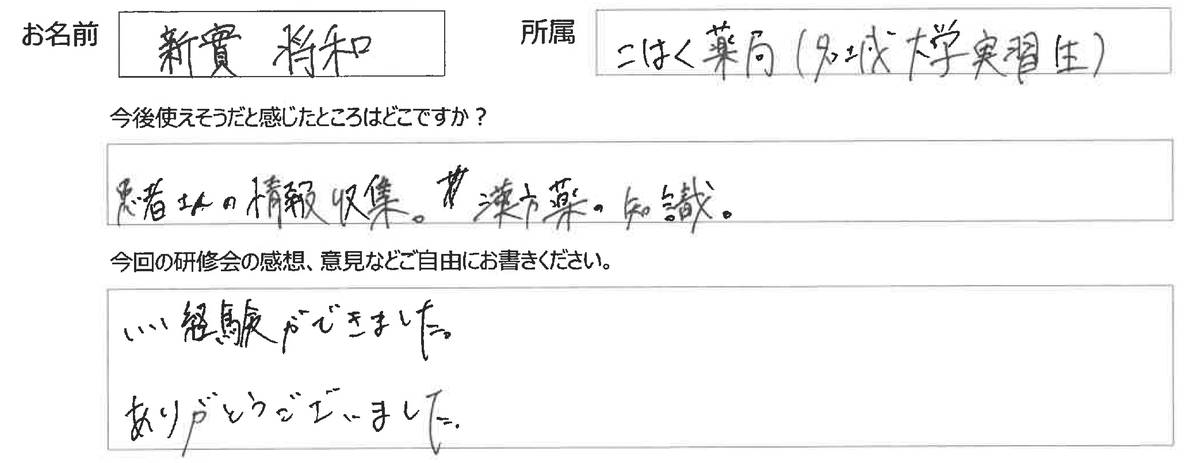 お名前 新實 将和 所属 こはく薬局(名城大学実習生)
今後使えそうだと感じたところはどこですか？
患者さんの情報収集。漢方薬の知識。
今回の研修会の感想、意見などご自由にお書きください。
いい経験ができました。
ありがとうございました。